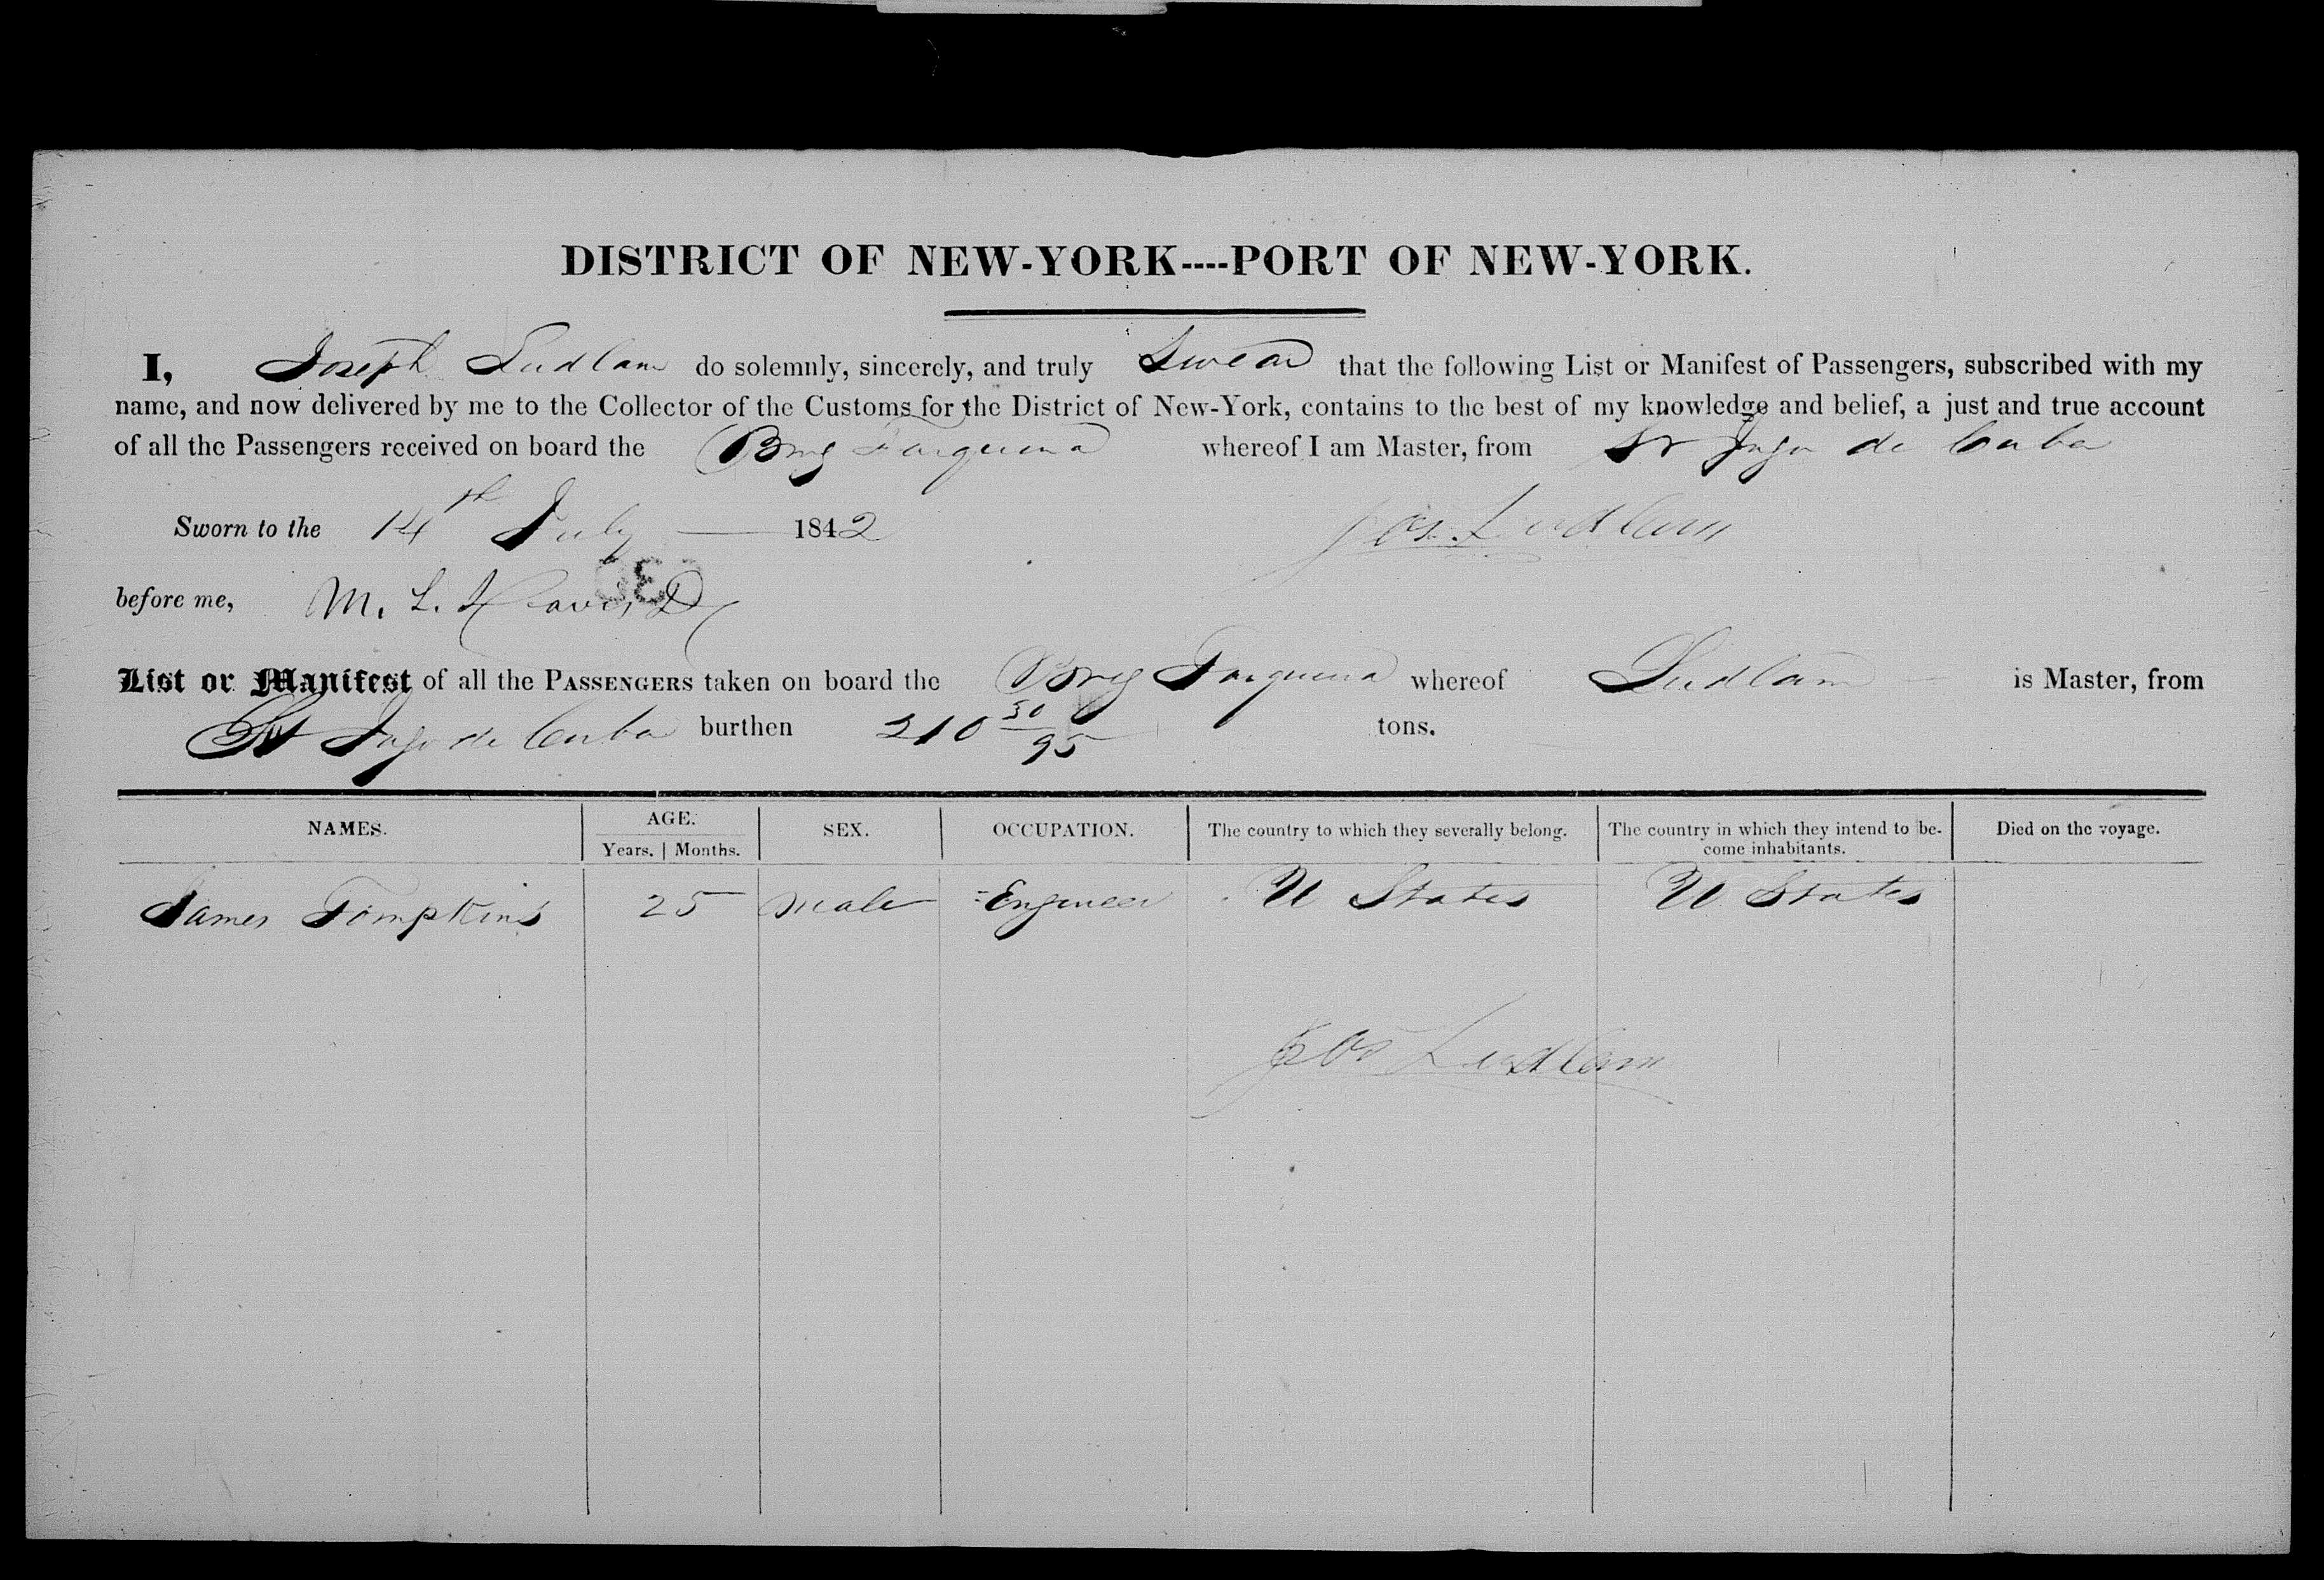 DISTRICT OF NEW-YORK----PORT OF NEW-YORK.
I, Joseph Ludlam do solemnly, sincerely, and truly Swear that the following List or Manifest of Passengers, subscribed with my
name, and now delivered by me to the Collector of the Customs for the District of New-York, contains to the best of my knowledge and belief, a just and true account
of all the Passengers received on board the Brig whereof I am Master, from St Jago de Cuba
Sworn to the 14th July 1842 Jos. Ludlam
before me, M. L. Davis, D
List or Manifest of all the PASSENGERS taken on board the Brig whereof Ludlam is Master, from
St Jago de Cuba burthen 210 30/95 tons.
NAMES. AGE. SEX. OCCUPATION. The country to which they severally belong. The country in which they intend to be- Died on the voyage.
Years. | Months. come inhabitants.
James Tompkins 25 Male Engineer U States U States
Jos Ludlam